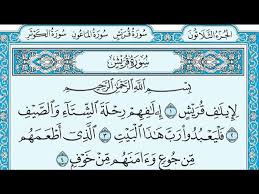 الجزء الثلاثون سورة قريش سورة الماعون سورة الكوثر
سورة قريش
بسم الله الرحمن الرحيم
لإيلاف قريش ١ إۦلافهم رحلة الشتاء والصيف
٢ فليعبدوا رب هذا البيت ٣ الذي أطعمهم
من جوع وءامنهم من خوف ٤